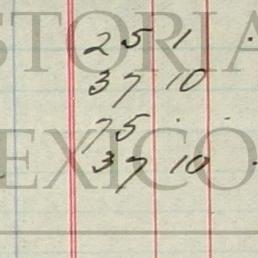 STORIA
25 1 .
37 10
75 . .
EXICO
37 10 .